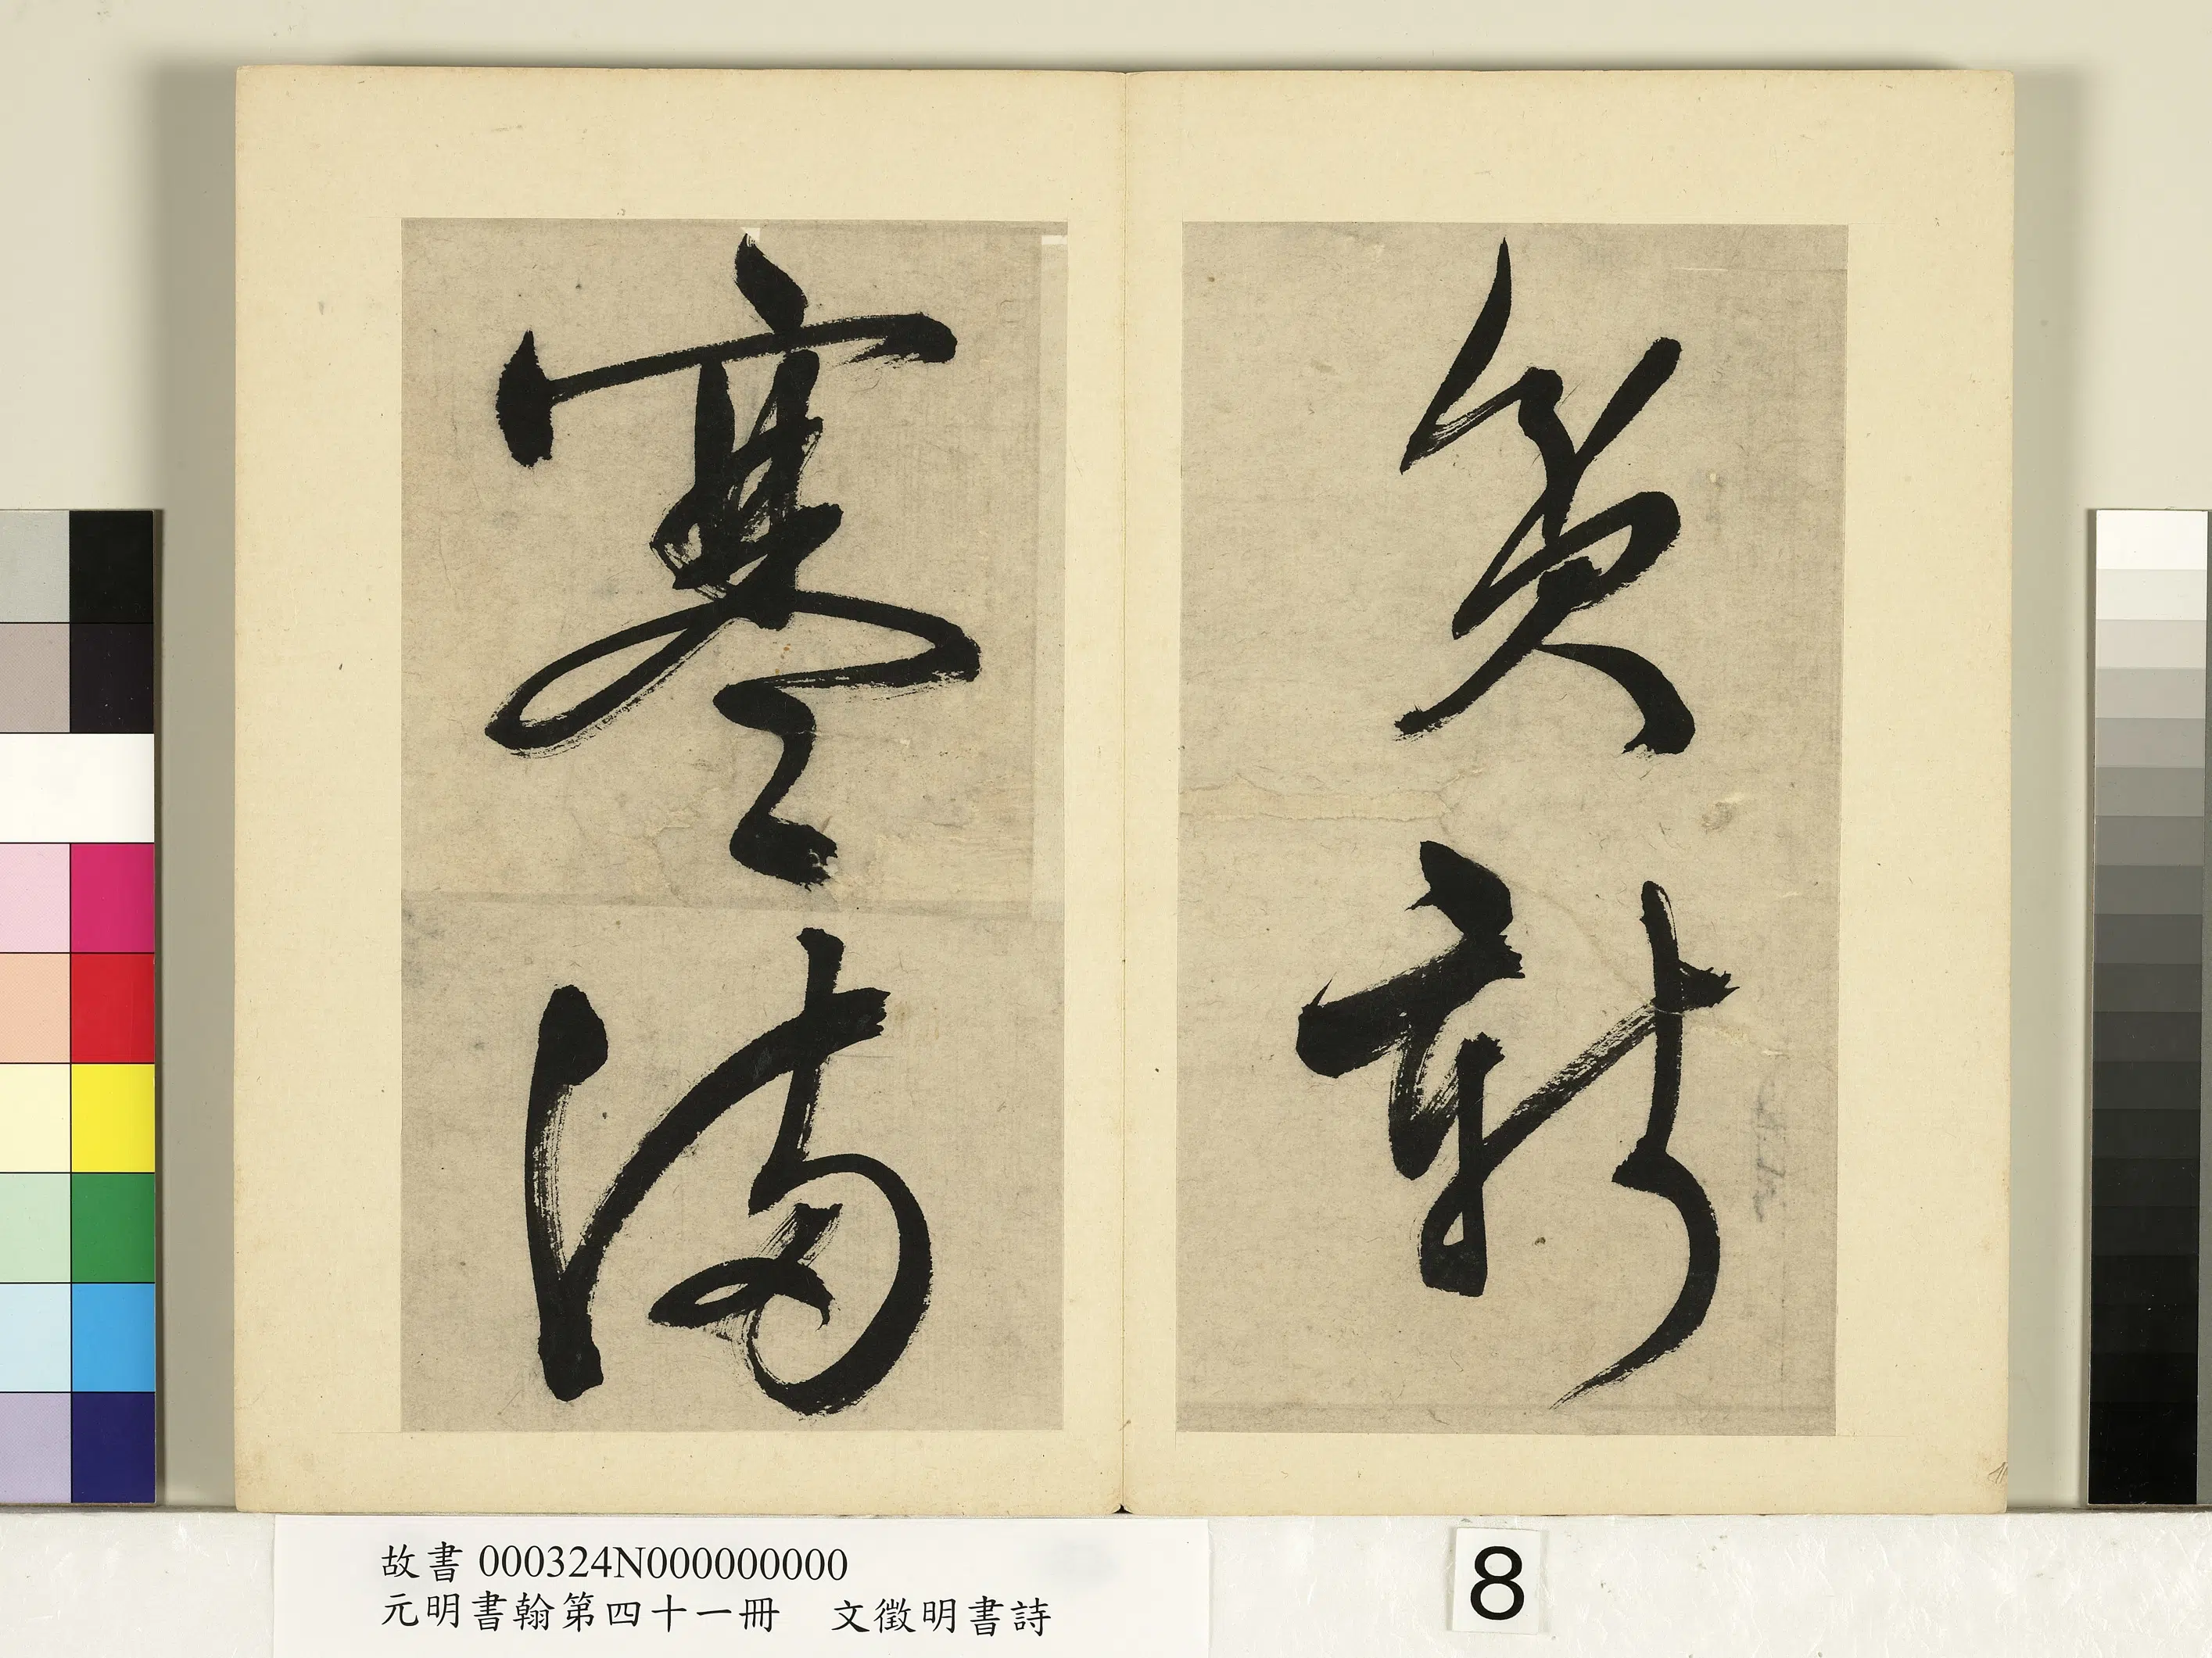 貧新
寒滿
故書 000324N000000000
元明書翰第四十一冊 文徵明書詩
8